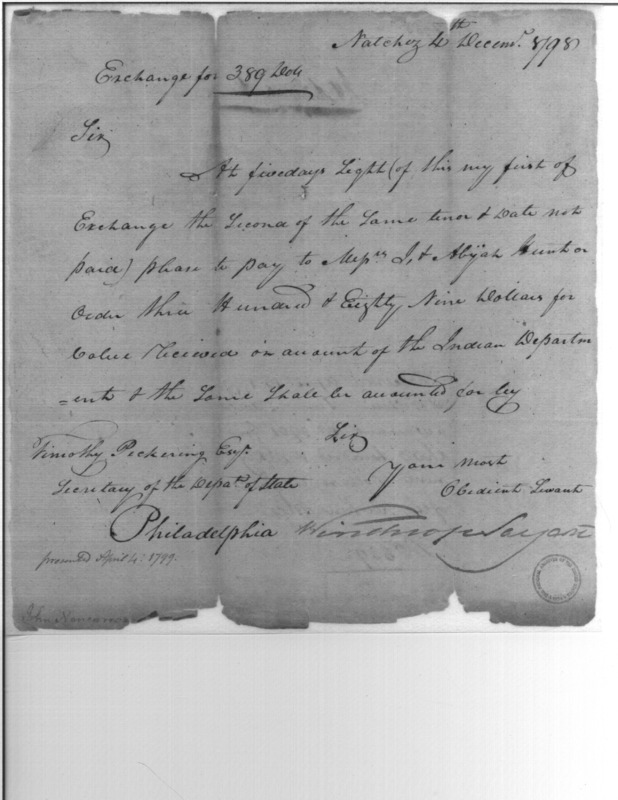 Natchez 4th Decemr. 1798
Exchange for 389 Dols
Sir
At five days Sight (of this my first of
Exchange the Second of the Same tenor & Date not
paid) please to pay to Messrs J. & Abijah Hunt or
order three Hundred & Eighty Nine Dollars for
Value Received on account of the Indian Departm
=ent & the Same Shall be accounted for by
Sir
Timothy Pickering Esqr.
Your most
Secretary of the Depat. of State
Obedient Servant
Philadelphia
Winthrop Sargent
presented April 4: 1799.
John